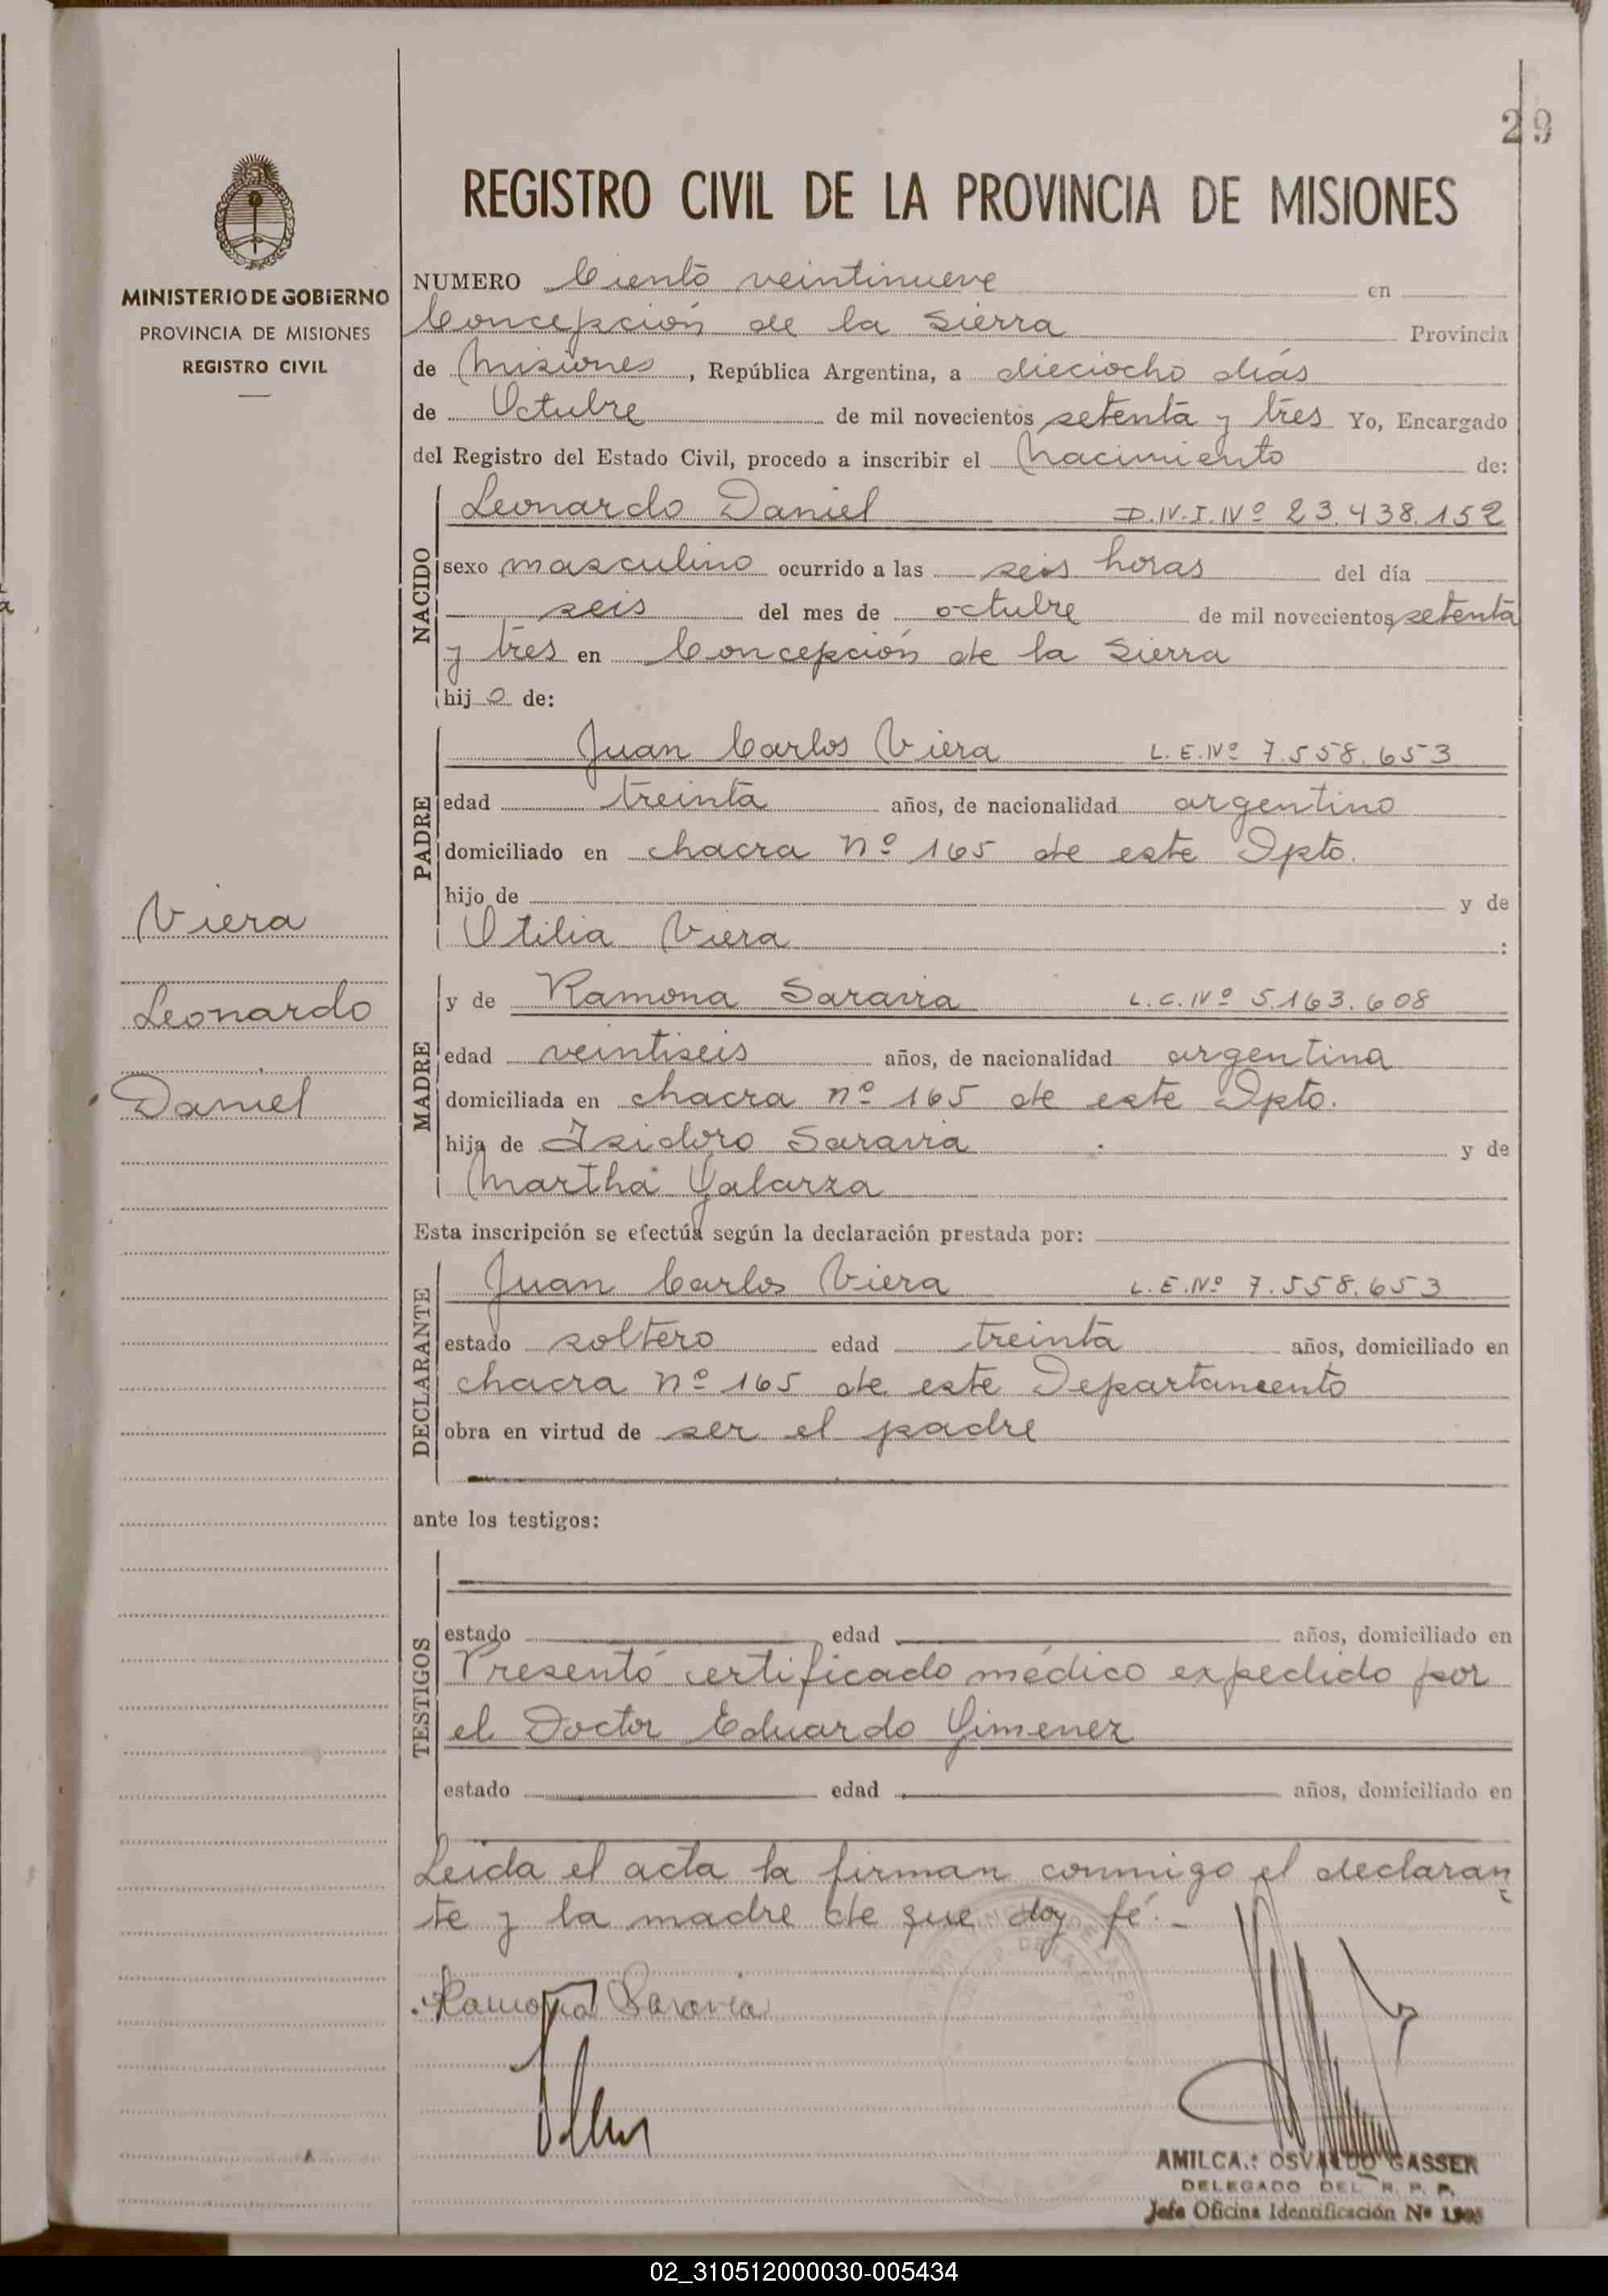 29
REGISTRO CIVIL DE LA PROVINCIA DE MISIONES
MINISTERIO DE GOBIERNO
PROVINCIA DE MISIONES
REGISTRO CIVIL
NUMERO Ciento veintinueve en
Concepción de la Sierra Provincia
de Misiones, República Argentina, a dieciocho días
de Octubre de mil novecientos setenta y tres Yo, Encargado
del Registro del Estado Civil, procedo a inscribir el Nacimiento de:
NACIDO
Leonardo Daniel D.N.I.Nº 23.438.152
sexo masculino ocurrido a las seis horas del día
seis del mes de octubre de mil novecientos setenta
y tres en Concepción de la Sierra
hijo de:
PADRE
Juan Carlos Viera L.E.Nº 7.558.653
edad treinta años, de nacionalidad argentino
domiciliado en chacra nº 165 de este Dpto.
hijo de y de
Otilia Viera :
Viera
Leonardo
Daniel
MADRE
y de Ramona Saravia L.C.Nº 5.163.608
edad veintiseis años, de nacionalidad argentina
domiciliada en chacra nº 165 de este Dpto.
hija de Isidoro Saravia y de
Martha Galarza
Esta inscripción se efectúa según la declaración prestada por:
DECLARANTE
Juan Carlos Viera L.E.Nº 7.558.653
estado soltero edad treinta años, domiciliado en
chacra nº 165 de este Departamento
obra en virtud de ser el padre
ante los testigos:
TESTIGOS
estado edad años, domiciliado en
Presentó certificado médico expedido por
el Doctor Eduardo Gimenez
estado edad años, domiciliado en
Leida el acta la firman conmigo el declaran
te y la madre de que doy fé.-
Ramona Saravia
AMILCA.: OSVALDO GASSER
DELEGADO DEL R. P. P.
Jefe Oficina Identificación Nº
02_310512000030-005434